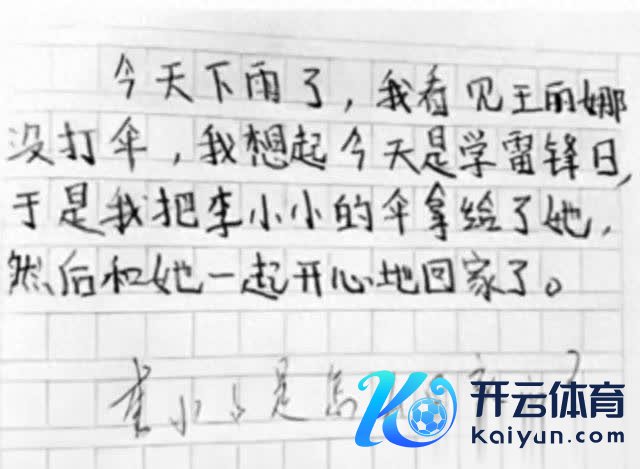 今天下雨了，我看见王丽娜
没打伞，我想起今天是学雷锋日，
于是我把李小小的伞拿给了她，
然后和她一起开心地回家了。
李小小是怎
开云体育
Kaiyun.com